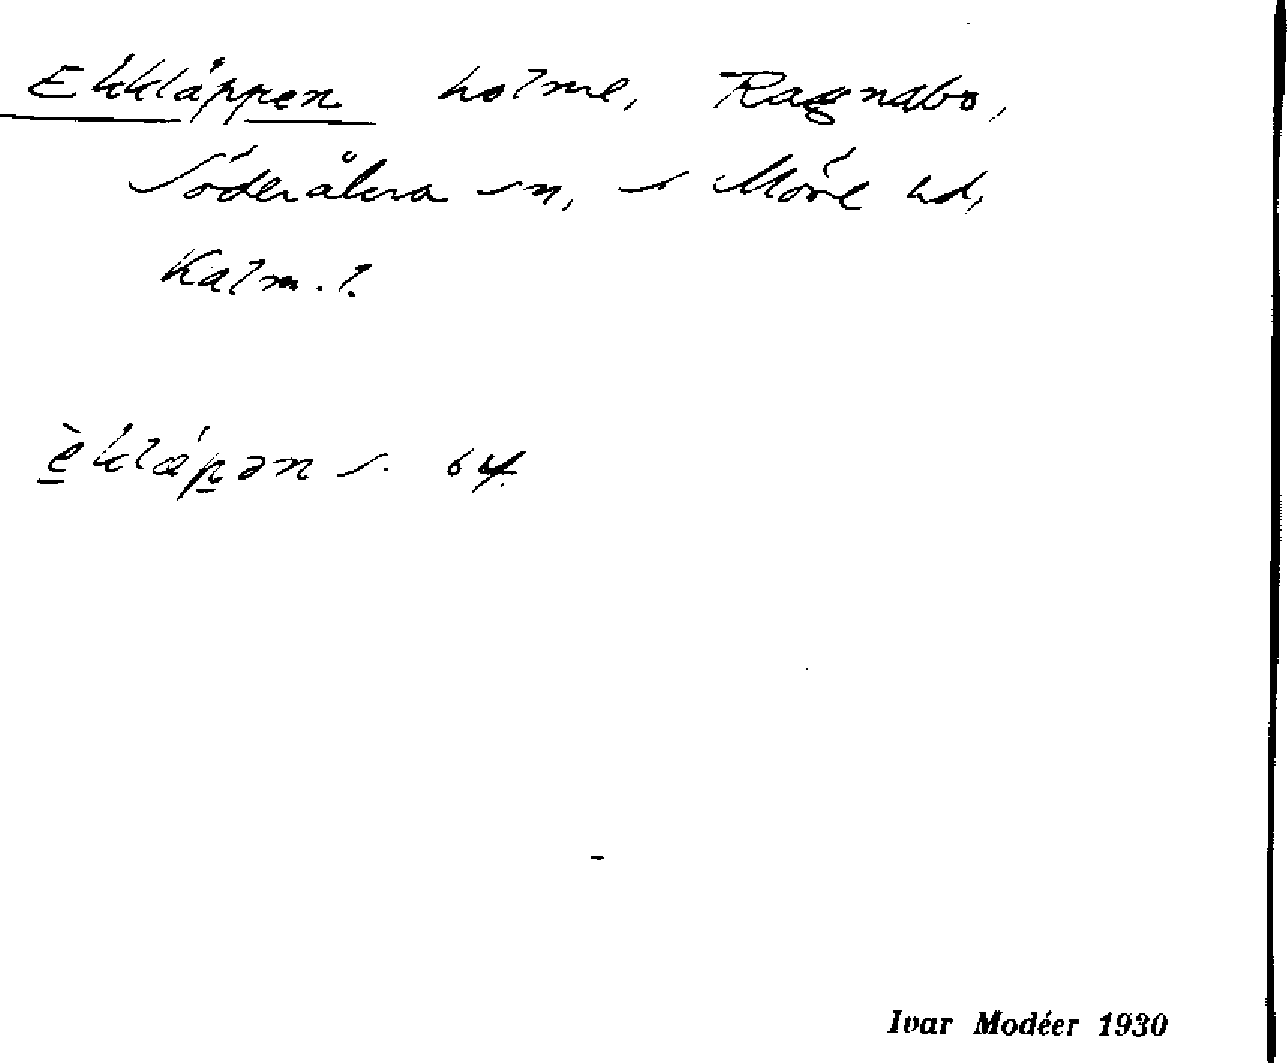 Ekkläppen holme, Ragnabo,
Söderåkra sn, s Möre hd,
Kalm. l.
èklápən s. 64.
Ivar Modéer 1930